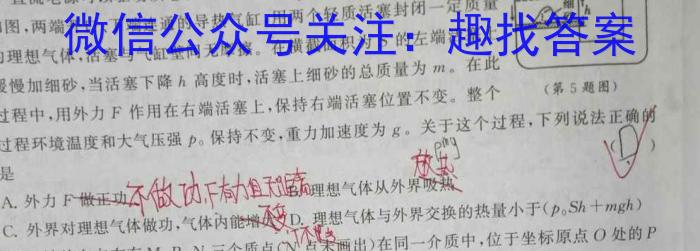 微信公众号关注：趣找答案
图,两端
的导热气缸,用两个轻质活塞封闭一定质量
的理想气体,活塞与气缸壁间无摩擦。在横截面积
的左端活
缓慢加细砂,当活塞下降 h 高度时,活塞上细砂的总质量为 m。在此
(第 5 题图)
过程中,用外力 F 作用在右端活塞上,保持右端活塞位置不变。整个
过程环境温度和大气压强 p₀保持不变,重力加速度为 g。关于这个过程,下列说法正确的
是
( D )
放热
A. 外力 F 做正功
不做功,F有力且无距离
理想气体从外界吸热
C. 外界对理想气体做功,气体内能增
不变
D. 理想气体与外界交换的热量小于(p₀Sh+mgh)
三个质点(N
点未画出)在同一介质中,位于坐标原点 O 处的 P